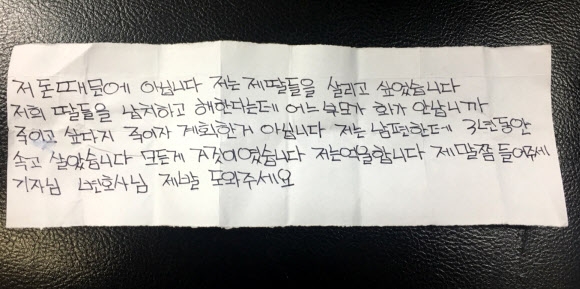 저 돈때문에 아닙니다 저는 제딸들을 살리고 싶었습니다
저희 딸들을 납치하고 해한다는데 어느 부모가 화가 안납니까
죽이고 싶다지 죽이자 계획한거 아닙니다 저는 남편한데 3년동안
속고 살았습니다 모든게 거짓이였습니다 저는억울합니다 제말쫌 들어주세
기자님 변호사님 제발 도와주세요